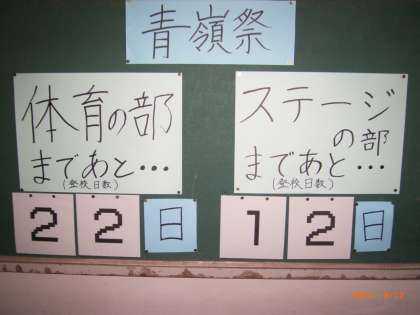 青嶺祭
体育の部
まであと…
(登校日数)
22日
ステージ
の部
まであと…
(登校日数)
12日